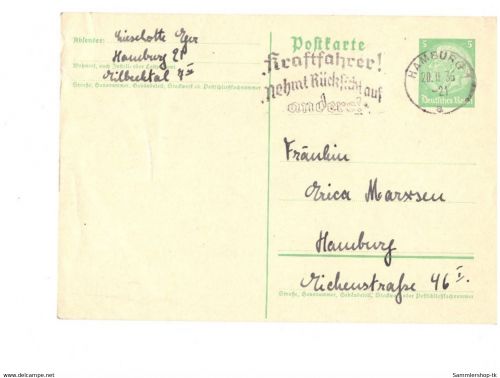 Absender: Lieselotte Eger
Hamburg 21
Wohnort, auch Zustell- oder Leitpostamt
Eilbecktal 7 II
Straße, Hausnummer, Gebäudeteil, Stockwerk od. Postschließfachnummer
Postkarte
Kraftfahrer!
Nehmt Rücksicht auf
andere!
HAMBURG 1
20.11.36
-21
a
5
5
Deutsches Reich
Fräulein
Erica Marxsen
Hamburg
Eichenstraße 46 I.
Straße, Hausnummer, Gebäudeteil, Stockwerk oder Postschließfachnummer
www.delcampe.net
Sammlershop-tk